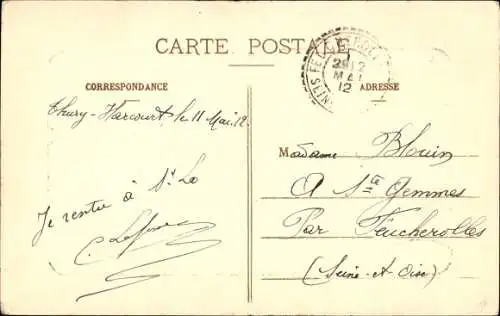 CARTE POSTALE
CORRESPONDANCE
ADRESSE
Thury-Harcourt, le 11 Mai 12.
Je rentre à St Lo
Madame Blouin
A Ste Gemmes
Par Feucherolles
(Seine-et-Oise)
MAI
12